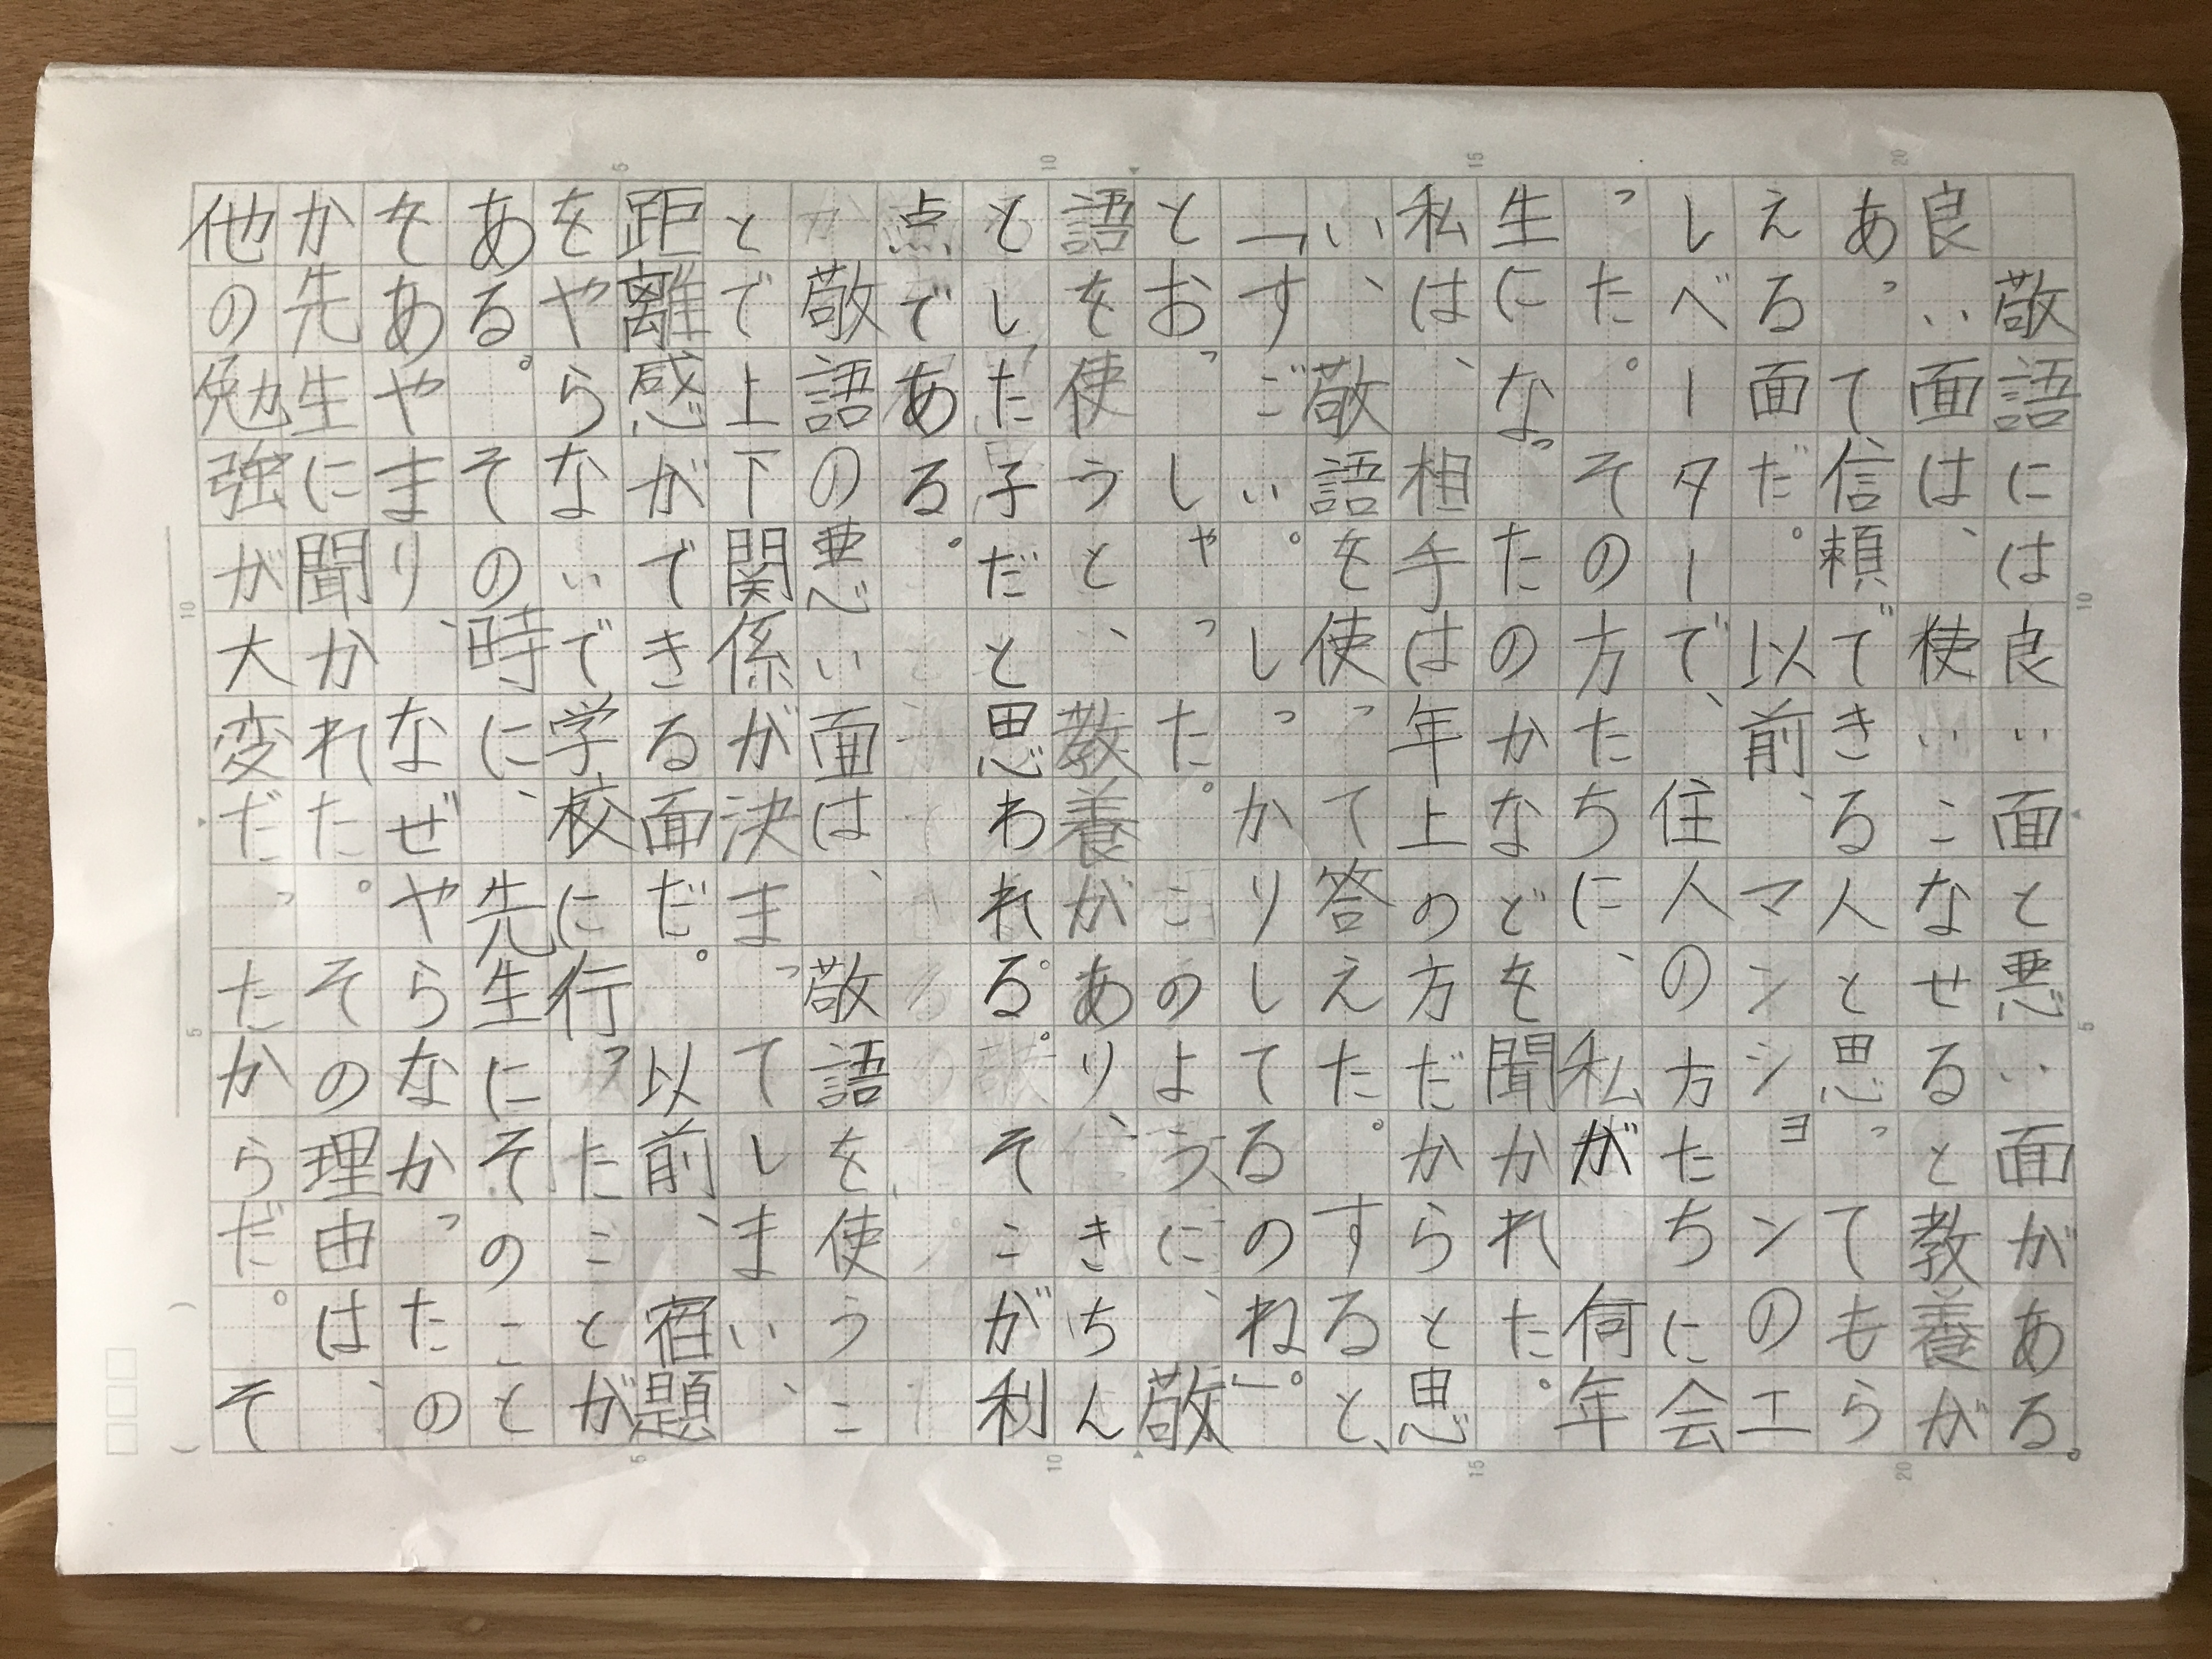 敬語には良い面と悪い面がある。
良い面は、使いこなせると教養が
あって信頼できる人と思ってもら
える面だ。以前、マンションのエ
レベーターで、住人の方たちに会
った。その方たちに、私が何年
生になったのかなどを聞かれた。
私は、相手は年上の方だからと思
い、敬語を使って答えた。すると、
「すごい。しっかりしてるのね。」
とおっしゃった。このように、敬
語を使うと、教養があり、きちん
とした子だと思われる。そこが利
点である。
敬語の悪い面は、敬語を使うこ
とで上下関係が決まってしまい、
距離感ができる面だ。以前、宿題
をやらないで学校に行ったことが
ある。その時に、先生にそのこと
をあやまり、なぜやらなかったの
か先生に聞かれた。その理由は、
他の勉強が大変だったからだ。そ